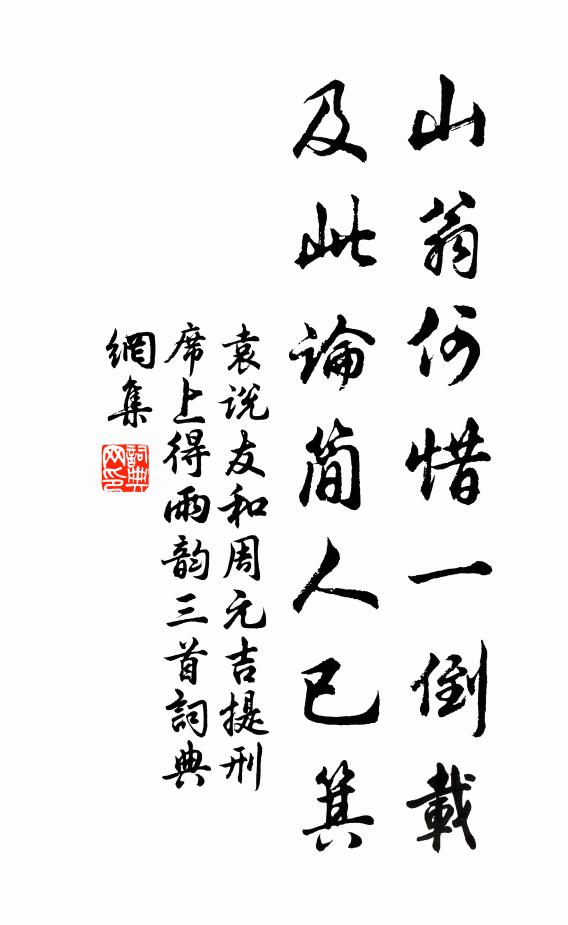 山翁何惜一倒載
及此論簡人已箕
袁説友和周元吉提刑
席上得雨韵三首詞典
網集
詞典
网印